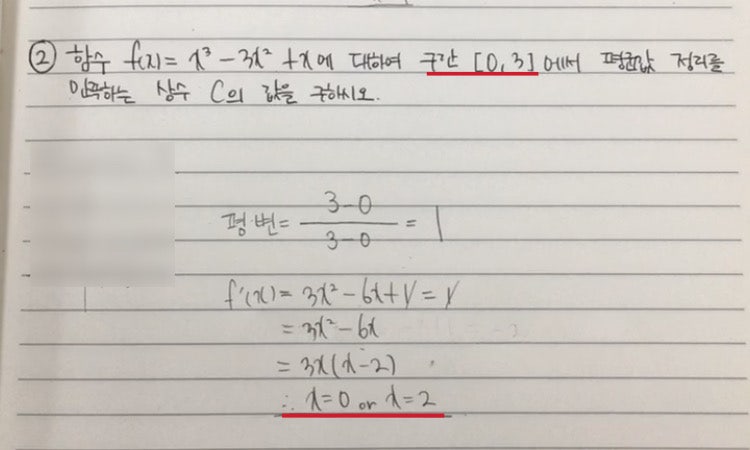 ② 함수 f(x) = x³ - 3x² + x에 대하여 구간 [0, 3]에서 평균값 정리를
만족하는 상수 C의 값을 구하시오.
평·변 = 3-0 / 3-0 = 1
f'(x) = 3x² - 6x + 1 = 1
= 3x² - 6x
= 3x(x-2)
∴ x=0 or x=2